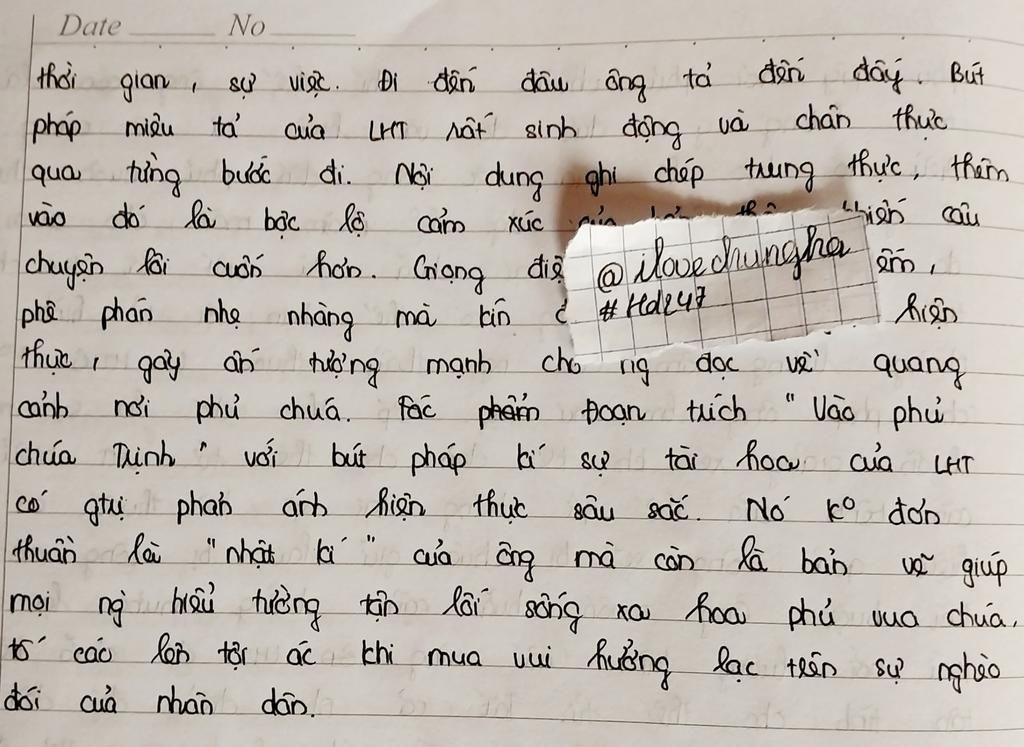 Date No
thời gian, sự việc. Đi đến đâu ông tả đến đấy. Bút
pháp miêu tả của LHT rất sinh động và chân thực
qua từng bước đi. Nội dung ghi chép trung thực, thêm
vào đó là bộc lộ cảm xúc khiến câu
chuyện lôi cuốn hơn. Giọng
@ilovechungha
#Hdl247
phê phán nhẹ nhàng mà kín hiện
thực, gây ấn tượng mạnh cho ng đọc về quang
cảnh nơi phủ chúa. Tác phẩm Đoạn trích "Vào phủ
chúa Trịnh" với bút pháp kí sự tài hoa của LHT
có gtrị phản ánh hiện thực sâu sắc. Nó kº đơn
thuần là "nhật kí" của ông mà còn là bản vẽ giúp
mọi ng` hiểu tường tận lối sống xa hoa phủ vua chúa,
tố cáo lên tội ác khi mua vui hưởng lạc trên sự nghèo
đói của nhân dân.